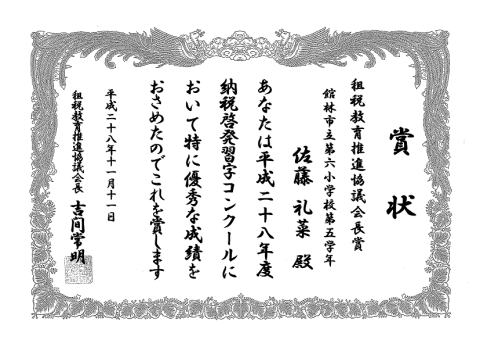 賞状
租税教育推進協議会長賞
館林市立第六小学校第五学年
佐藤 礼菜 殿
あなたは平成二十八年度
納税啓発習字コンクールに
おいて特に優秀な成績を
おさめたのでこれを賞します
平成二十八年十一月十一日
租税教育推進協議会長 吉間常明